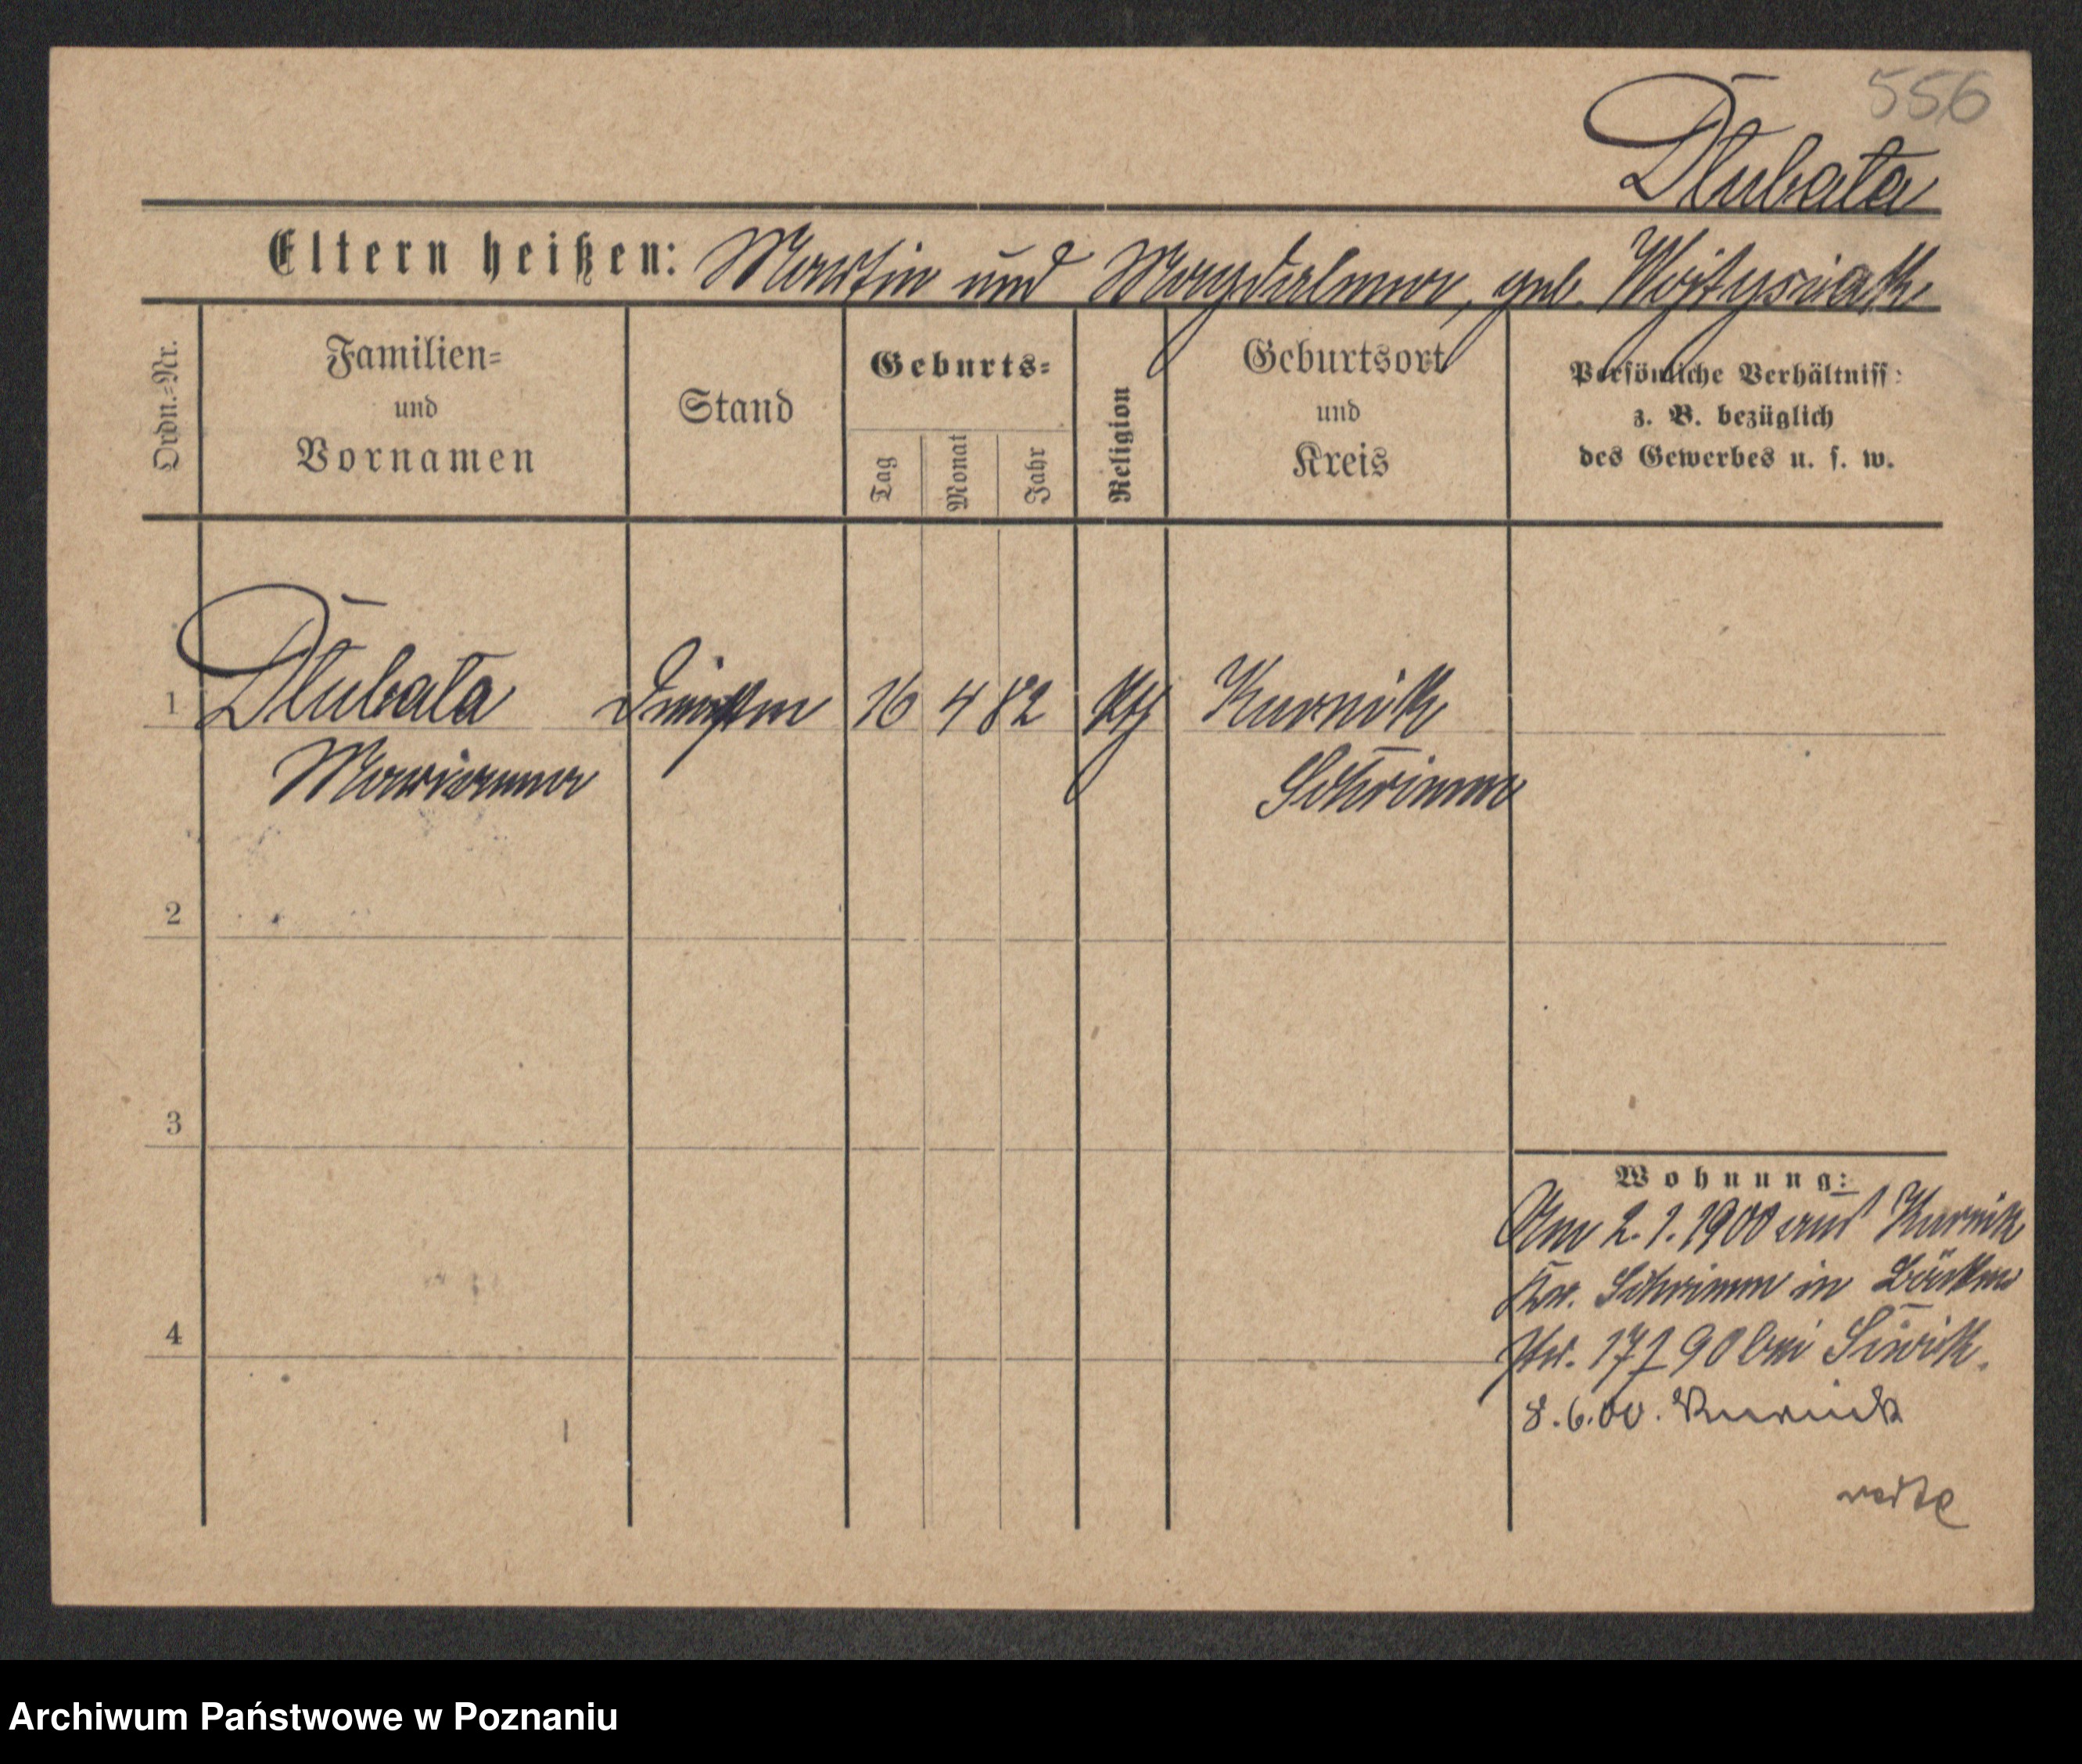 556
Dlubata
Eltern heißen: Martin und Magdalena, geb. Wojtysiak
Ordn.=Nr.
Familien=
und
Vornamen
Stand
Geburts=
Tag
Monat
Jahr
Religion
Geburtsort
und
Kreis
Persönliche Verhältniss:
z. B. bezüglich
des Gewerbes u. s. w.
1 Dlubata 16 4 82 kth Kurnik
Marianna Schrimm
2
3
4
Wohnung:
Am 2.1.1900 aus Kurnik
Kr. Schrimm in
171 90 bei
8.6.00. Kurnick
Archiwum Państwowe w Poznaniu